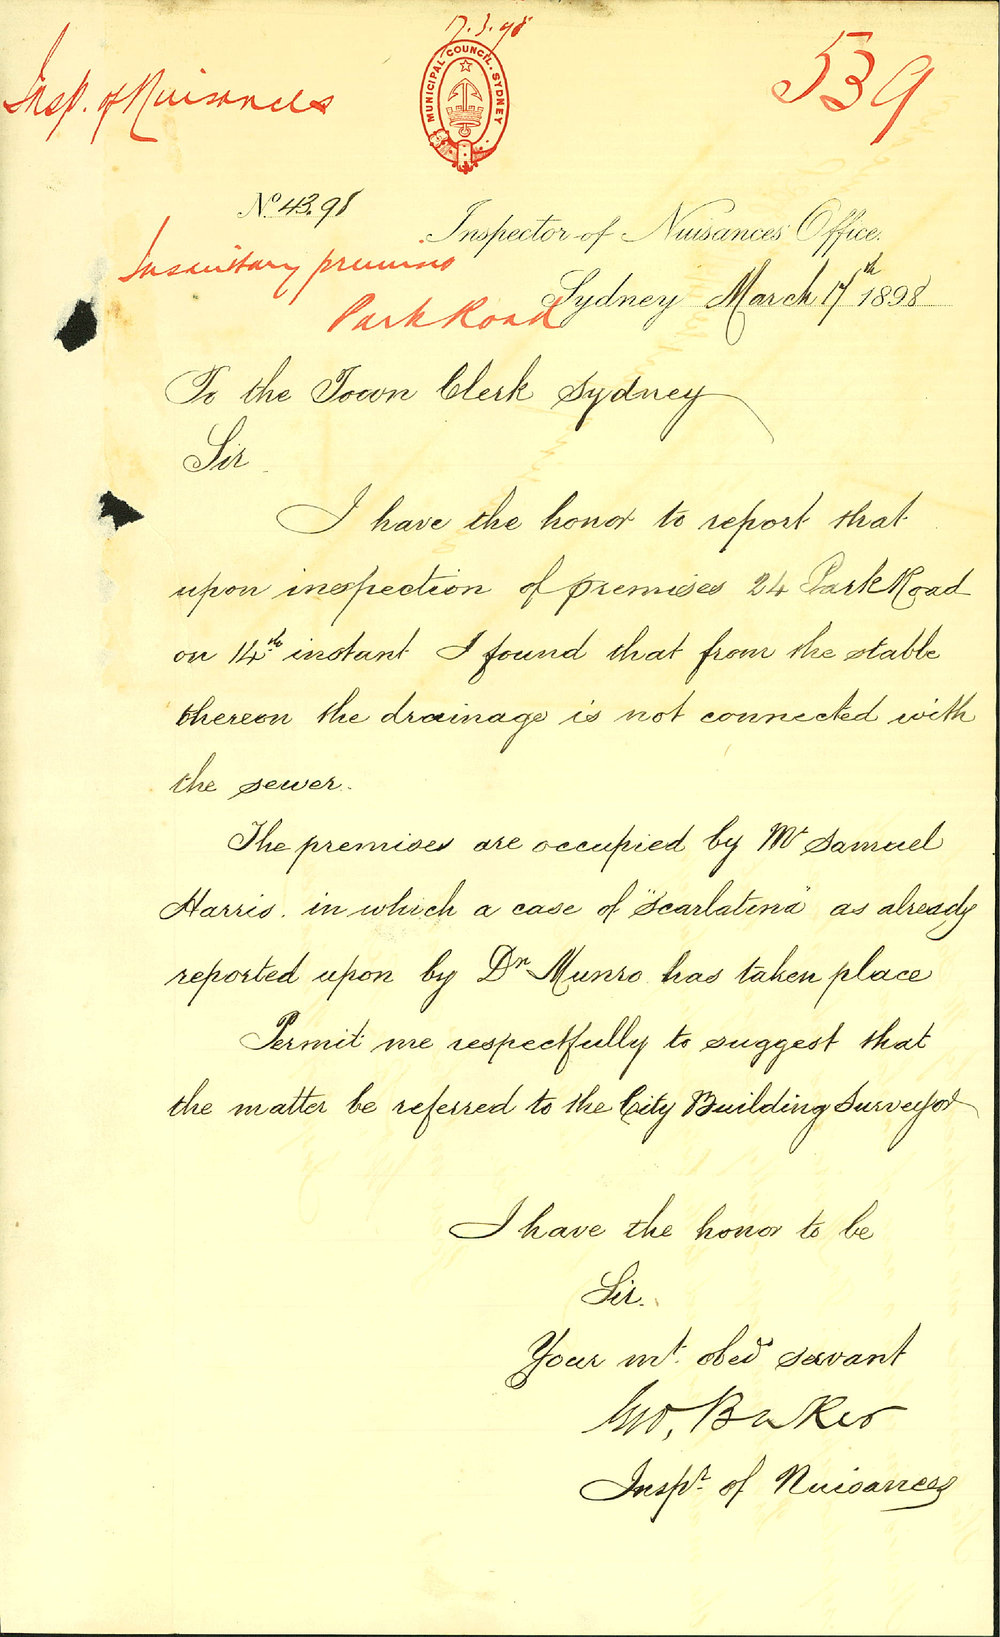 17.3.98
Insp. of Nuisances
539
MUNICIPAL COUNCIL. SYDNEY
No. 43.98
Inspector of Nuisances Office.
Insanitary premises
Sydney March 17th 1898
Park Road
To the Town Clerk Sydney
Sir
I have the honor to report that
upon inspection of premises 24 Park Road
on 14th instant I found that from the stable
thereon the drainage is not connected with
the sewer.
The premises are occupied by Mr Samuel
Harris. in which a case of "Scarlatina" as already
reported upon by Dr Munro has taken place
Permit me respectfully to suggest that
the matter be referred to the City Building Surveyor
I have the honor to be
Sir.
Your mt. obed servant
Geo, Baker
Inspr. of Nuisances